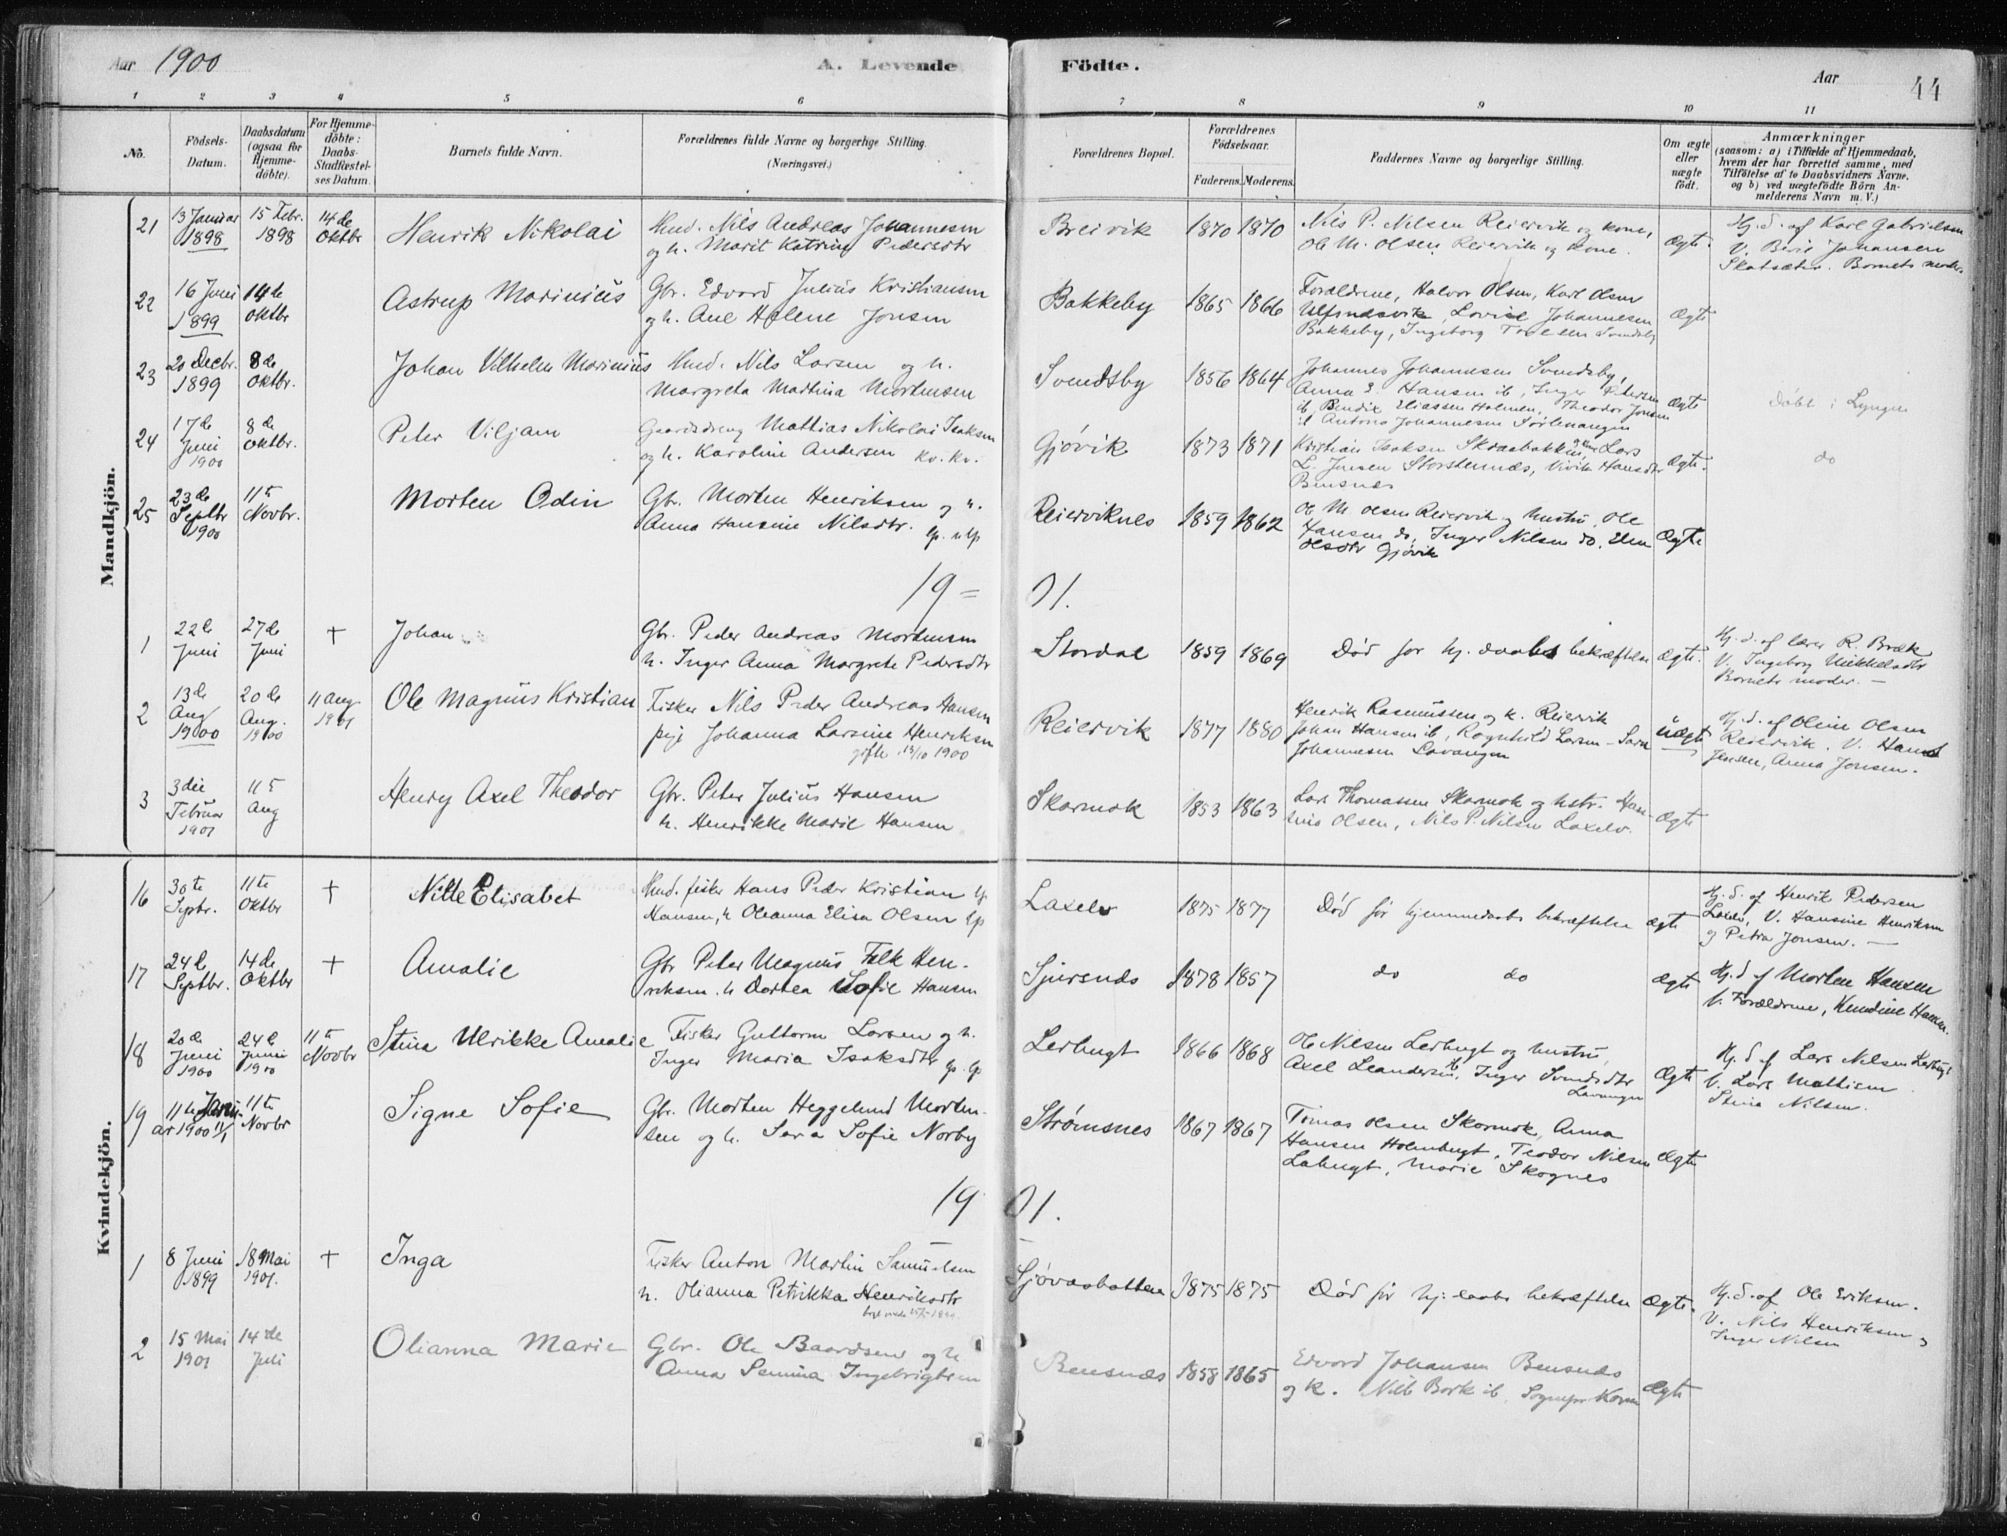 Aar 1900
A. Levende Födte.
Aar
44
1 2 3 4 5 6 7 8 9 10 11
No.
Födsels-Datum.
Daabsdatum (ogsaa for Hjemme-döbte).
For Hjemme-döbte: Daabs-Stadfæstel-ses Datum.
Barnets fulde Navn.
Forældrenes fulde Navne og borgerlige Stilling.
(Næringsvei.)
Forældrenes Bopæl.
Forældrenes Födselsaar.
Faderens. Moderens.
Faddernes Navne og borgerlige Stilling.
Om ægte eller uægte födt.
Anmærkninger
(saasom: a) i Tilfælde af Hjemmedaab,
hvem der har forrettet samme, med
Tilföielse af to Daabsvidners Navne.
og b) ved uægtefödte Börn An-
melderens Navn m. V.)
Mandkjön.
21 13 Januar 1898 15 Febr. 1898 14 de Oktbr Henrik Nikolai
Hmd. Nils Andreas Johannesen
og h. Marit Katrine Pedersdtr
Breivik 1870 1870
Nils P. Nilsen Reiervik og kone,
Ol M. Olsen Reiervik og kone.
Ægte.
Hj. d. af Karl Gabrielsen
V. Berit Johansen
Barnets moder.
22 16 Juni 1899 14 de Oktbr Astrup Marinius
Gbr. Edvard Julius Kristiansen
og h. Ane Helene Jonsen
Bakkeby 1865 1866
Forældrene, Halvor Olsen, Karl Olsen
Ulfsnesvik, Lovise Johannesen
Bakkeby, Ingeborg
Ægte
23 20 Decbr. 1899 8 de Oktbr. Johan Vilhelm Marinius
Hmd. Nils Larsen og h.
Margreta Martina Mortensen
Svendsby 1856 1864
Johannes Johannesen Svendsby,
Anna E. Hansen ib, Inger Petersen
ib, Bendix Eliassen Holmen, Theodor Jonsen
ib Antona Johannesen Sørlenangen
Ægte
Døbt i Lyngen
24 17 de Juni 1900 8 de Oktbr. Peter Viljam
Gaardsdreng Mattias Nikolai Isaksen
og h. Karoline Andersen kv. kv.
Gjövik 1873 1871
Kristian Isaksen Skraabakken, Lars
L. Jensen Storstennes, Vivik Hansdtr
Bensnes
Ægte.
do
25 23 de Septbr 1900 11te Novbr. Morten Odin
Gbr. Morten Henriksen og h.
Anna Hansine Nilsdtr.
Reierviknes 1859 1862
Ol M Olsen Reiervik og hustru, Ole
Hansen do, Inger Nilsen do, Elen
Olsdtr Gjövik
Ægte
19 = 01.
1 22 de Juni 27 de Juni + Johan
Gbr. Peder Andreas Mortensen
h. Inger Anna Margrete Pedersdtr
Stordal 1859 1869
Död før hj. daabs bekræftelse
Ægte.
Hj. d. af lærer R. Bræk
V. Ingeborg Mikkelsdtr
Barnets moder. —
2 13 de Aug 1900 20 de Aug. 1900 11 aug 1901 Ole Magnus Kristian
Fisker Nils Peder Andreas Hansen
pige Johanna Larsine Henriksen
gifte 14/10 1900
Reiervik 1877 1880
Henrik Rasmussen og k. Reiervik
Johan Hansen ib, Ragnhild Larsen - Sara
Johannesen Lavangen
uægte
Hj. d. af Oline Olsen
Reiervik. V. Hans
Jensen, Anna Jonsen.
3 3die Februar 1901 11 Aug Henry Axel Theodor
Gbr. Peter Julius Hansen
h. Henrikke Marie Hansen
Skarmok 1853 1863
Lars Thomassen Skarmok og hstr. Han-
sina Olsen, Nils P. Nilsen Laxelv.
Ægte
Kvindekjön.
16 30te Septbr. 11te Oktbr + Nille Elisabet
Hmd. fisker Hans Peder Kristian
Hansen, h Oleanna Elisa Olsen
Laxelv 1875 1877
Död før hjemmedaabs bekræftelse
Ægte
Hj. d. af Henrik Pedersen
Laxelv, V. Hansine Henriksen
og Petra Jonsen. —
17 24 de Septbr. 14 de Oktbr + Amalie
Gbr Peter Magnus Falk Hen-
riksen. h Dortea Sofie Hansen
Sjursnes 1878 1857
do do
Ægte
Hj. d af Morten Hansen
V. Forældrene, Hansen.
18 20 de Juni 1900 24 de Juni 1900 11te Novbr Stina Ulrikke Amalie
Fisker Guttorm Larsen og h.
Inger Maria Isaksdtr
Lerbugt 1866 1868
Ole Nilsen Lerbugt og hustru,
Axel Leandersen ib, Inger Svendsdtr
Lavangen
Ægte
Hj. d af Lars Nilsen Lerbugt
V. Lars Mathisen
Stina Nilsen.
19 11te Januar 1900 11/1 11te Novbr Signe Sofie
Gbr. Morten Heggelund Morten-
sen og h. Sara Sofie Norby
Strömsnes 1867 1867
Tomas Olsen Skarmok, Anna
Hansen Holmbugt, Teodor Nilsen
Labugt, Marie Skognes
Ægte
19 01.
1 8 Juni 1899 18 Mai 1901. + Inga
Fisker Anton Martin Samuelsen
h. Olianna Petrikka Henriksdtr
Sjövasbotten 1875 1875
Död før hj. daabs bekræftelse
Ægte.
Hj. d. af Ole Eriksen.
V. Nils Henriksen og
Inger Nilsen
2 15 Mai 1901 14 de Juli Olianna Marie
Gbr. Ole Baardsen og h
Anna Semina Ingebrigtsen
Bensnæs 1858 1865
Edvard Johansen Bensnæs
og k. Nils Bork ib,
Ægte